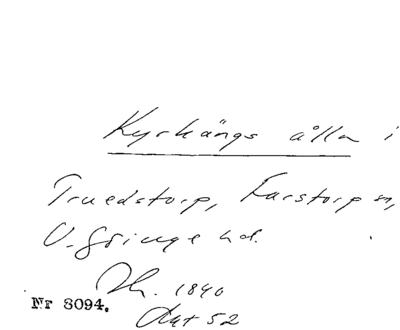 Kyrkängs ålla i
Truedstorp, Farstorp sn,
V. Göinge hd.
Th. 1840
Akt 52
Nr 3094.